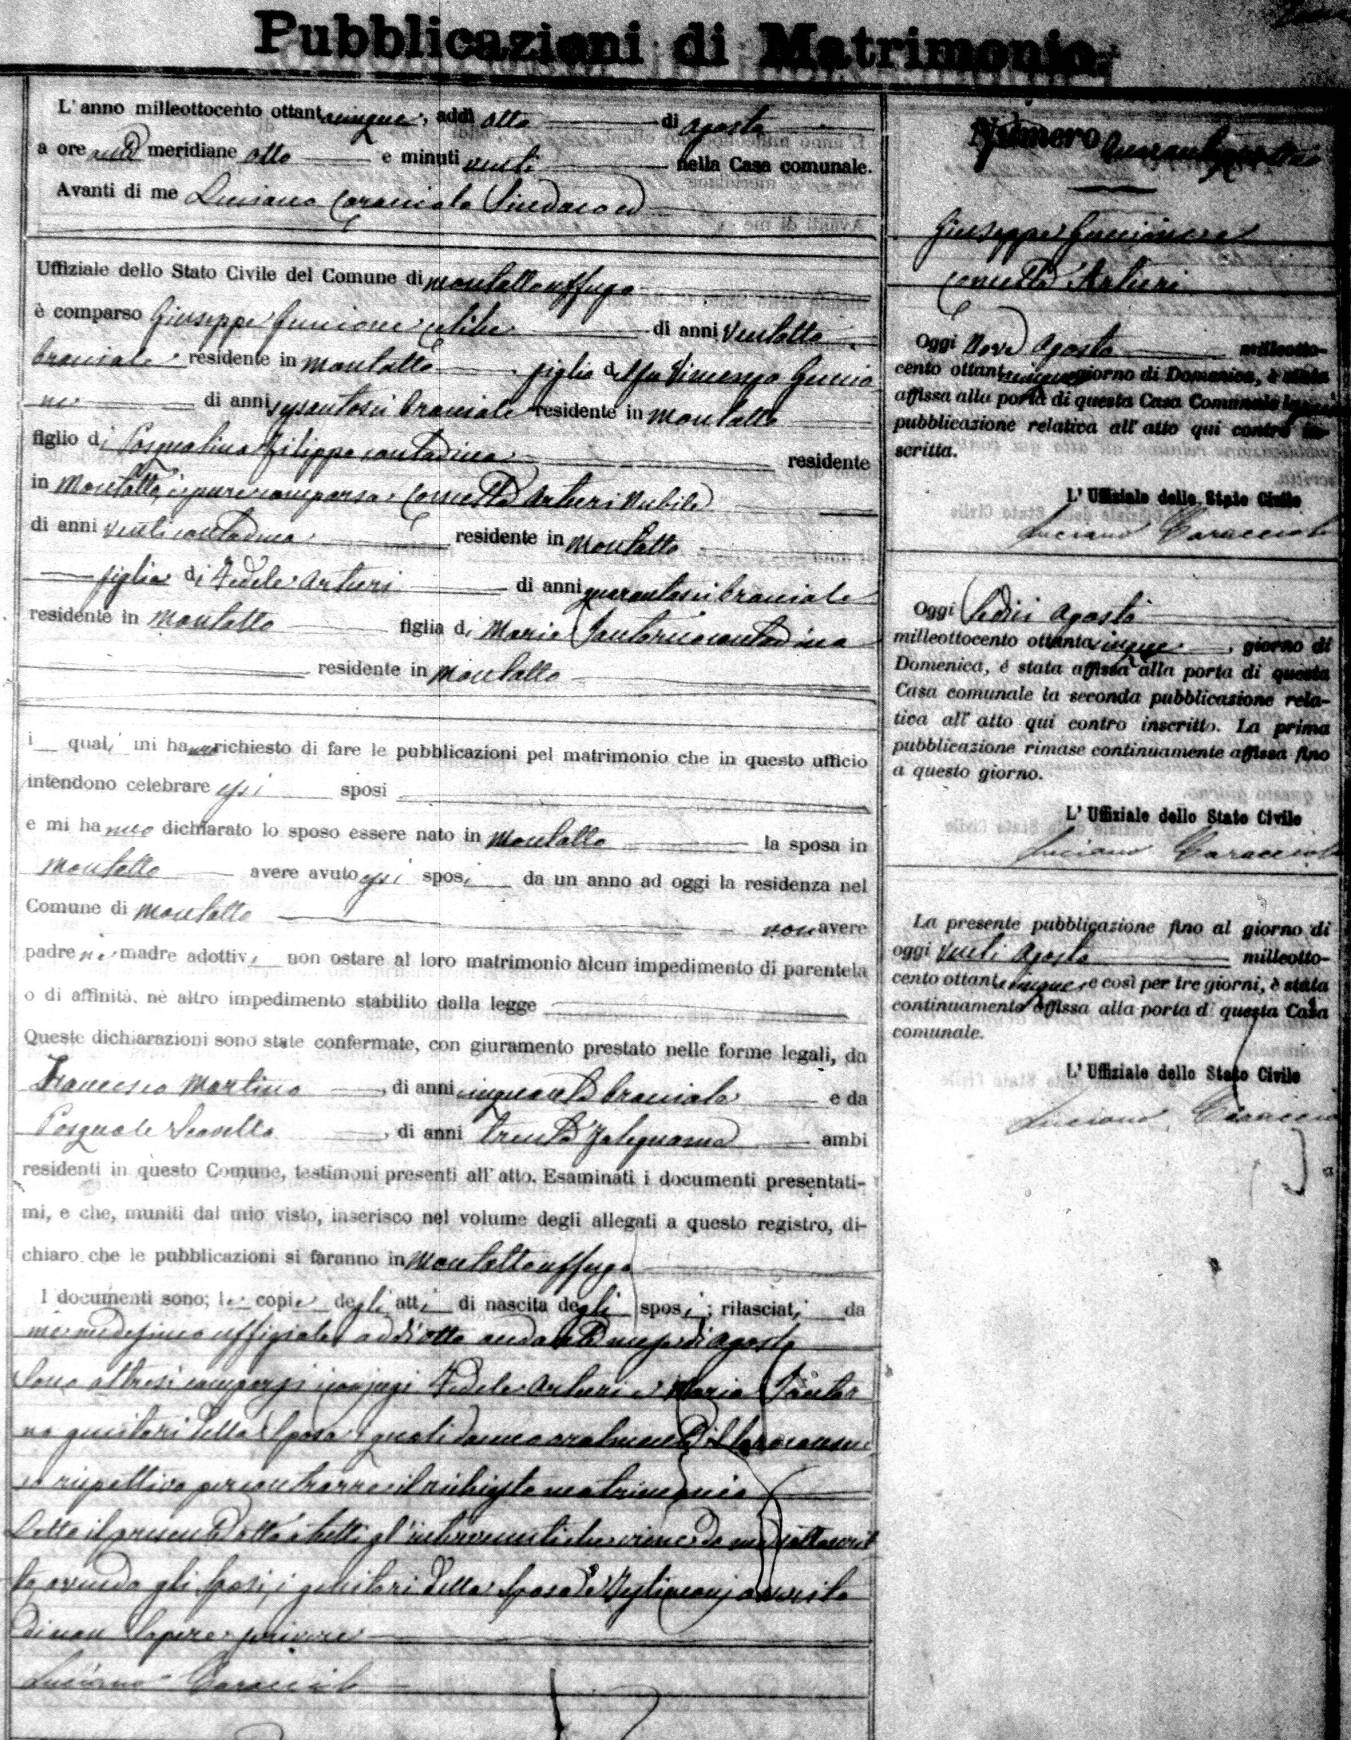 Pubblicazioni di Matrimonio.
L'anno milleottocento ottantacinque, addì otto di Agosto
a ore meridiane otto e minuti venti nella Casa comunale.
Avanti di me Luciano Caracciolo Sindaco ed
Uffiziale dello Stato Civile del Comune di Montaltouffugo
è comparso Giuseppe Guccione celibe di anni ventotto
bracciale residente in Montalto figlio di fu Vincenzo Guccio
ne di anni sessantasei bracciale residente in Montalto
figlio di Pasqualina Filippo contadina residente
in Montalto, è pure comparsa Concetta Artieri Nubile
di anni venti contadina residente in Montalto
figlia di Fedele Artieri di anni quarantasei bracciale
residente in Montalto figlia di Maria Santorno contadina
residente in Montalto
i quali mi hanno richiesto di fare le pubblicazioni pel matrimonio che in questo ufficio
intendono celebrare essi sposi
e mi hanno dichiarato lo sposo essere nato in Montalto la sposa in
Montalto avere avuto essi sposi da un anno ad oggi la residenza nel
Comune di Montalto non avere
padre nè madre adottivi non ostare al loro matrimonio alcun impedimento di parentela
o di affinità, nè altro impedimento stabilito dalla legge
Queste dichiarazioni sono state confermate, con giuramento prestato nelle forme legali, da
Francesco Martino, di anni cinquanta bracciale e da
Pasquale Scanello, di anni trenta falegname ambi
residenti in questo Comune, testimoni presenti all'atto. Esaminati i documenti presentati-
mi, e che, muniti dal mio visto, inserisco nel volume degli allegati a questo registro, di-
chiaro che le pubblicazioni si faranno in Montaltouffugo
I documenti sono; le copie degli atti di nascita degli sposi; rilasciati da
me medesimo uffiziale addì otto andante mese di agosto
Sono altresì comparsi i coniugi Fedele Artieri e Maria Santor
no genitori della Sposa i quali danno oralmente il loro consen
so rispettivo per contrarre il richiesto matrimonio
Letto il presente atto a tutti gl'intervenuti che viene da me sottoscrit
to avendo gli sposi, i genitori della sposa e Testimoni asserito
di non sapere scrivere
Luciano Caracciolo
Numero
Giuseppe Guccione e
Concetta Artieri
Oggi Nove Agosto milleotto-
cento ottantacinque giorno di Domenica, è stata
affissa alla porta di questa Casa Comunale la prima
pubblicazione relativa all'atto qui contro in-
scritta.
L'Uffiziale dello Stato Civile
Luciano Caracciolo
Oggi Sedici Agosto
milleottocento ottantacinque, giorno di
Domenica, è stata affissa alla porta di questa
Casa comunale la seconda pubblicazione rela-
tiva all'atto qui contro inscritto. La prima
pubblicazione rimase continuamente affissa fino
a questo giorno.
L'Uffiziale dello Stato Civile
Luciano Caracciolo
La presente pubblicazione fino al giorno di
oggi venti Agosto milleotto-
cento ottantacinque e così per tre giorni, è stata
continuamente affissa alla porta di questa Casa
comunale.
L'Uffiziale dello Stato Civile
Luciano Caracciolo